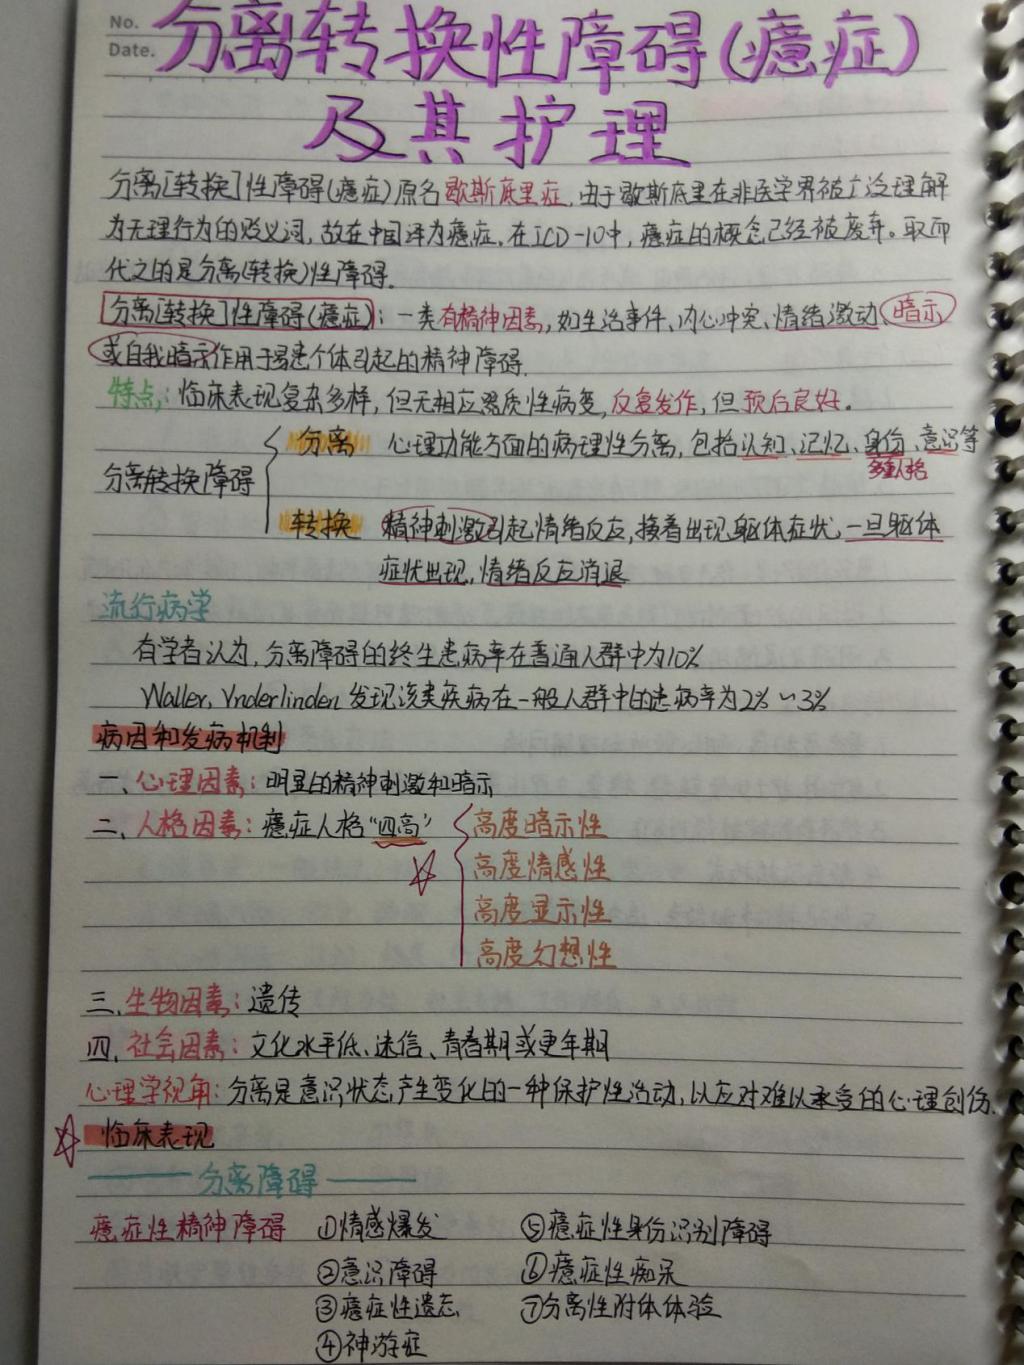 No.
Date.
分离转换性障碍(癔症)
及其护理
分离[转换]性障碍(癔症)原名歇斯底里症,由于歇斯底里在非医学界被广泛理解
为无理行为的贬义词,故在中国译为癔症。在ICD-10中,癔症的概念已经被废弃。取而
代之的是分离(转换)性障碍.
分离[转换]性障碍(癔症):一类有精神因素,如生活事件、内心冲突、情绪激动、暗示
或自我暗示作用于易患个体引起的精神障碍.
特点:临床表现复杂多样,但无相应器质性病变,反复发作,但预后良好。
分离 心理功能方面的病理性分离,包括认知、记忆、身份、意识等
多重人格
分离转换障碍
转换 精神刺激引起情绪反应,接着出现躯体症状,一旦躯体
症状出现,情绪反应消退
流行病学
有学者认为,分离障碍的终生患病率在普通人群中为10%
Waller, Vnderlinden 发现该类疾病在一般人群中的患病率为2%~3%
病因和发病机制
一、心理因素:明显的精神刺激和暗示
二、人格因素:癔症人格“四高” 高度暗示性
高度情感性
高度显示性
高度幻想性
三、生物因素:遗传
四、社会因素:文化水平低、迷信、青春期或更年期
心理学视角:分离是意识状态产生变化的一种保护性活动,以应对难以承受的心理创伤.
临床表现
分离障碍
癔症性精神障碍 ①情感爆发 ⑤癔症性身份识别障碍
②意识障碍 ⑥癔症性痴呆
③癔症性遗忘 ⑦分离性附体体验
④神游症